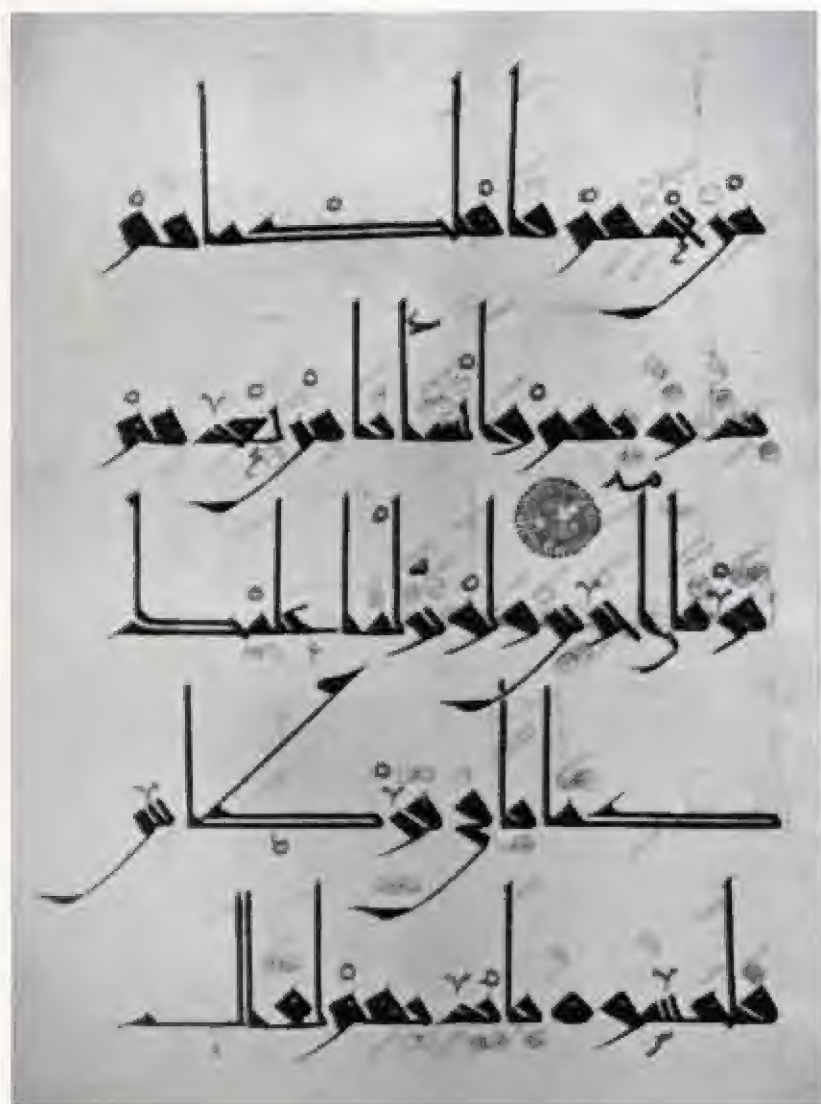 من تحتهم فاهلكناهم
بذنوبهم وأنشأنا من بعدهم
قرنا اخرين ولو نزلنا عليك
كتابا في قرطاس
فلمسوه بايديهم لقال